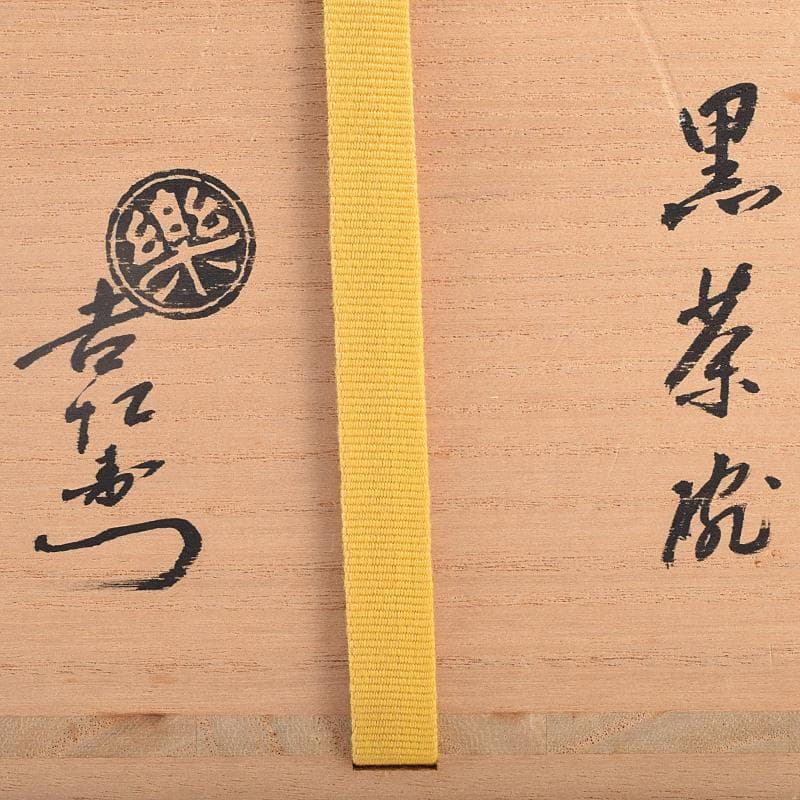 黒茶碗
樂
吉左衛門